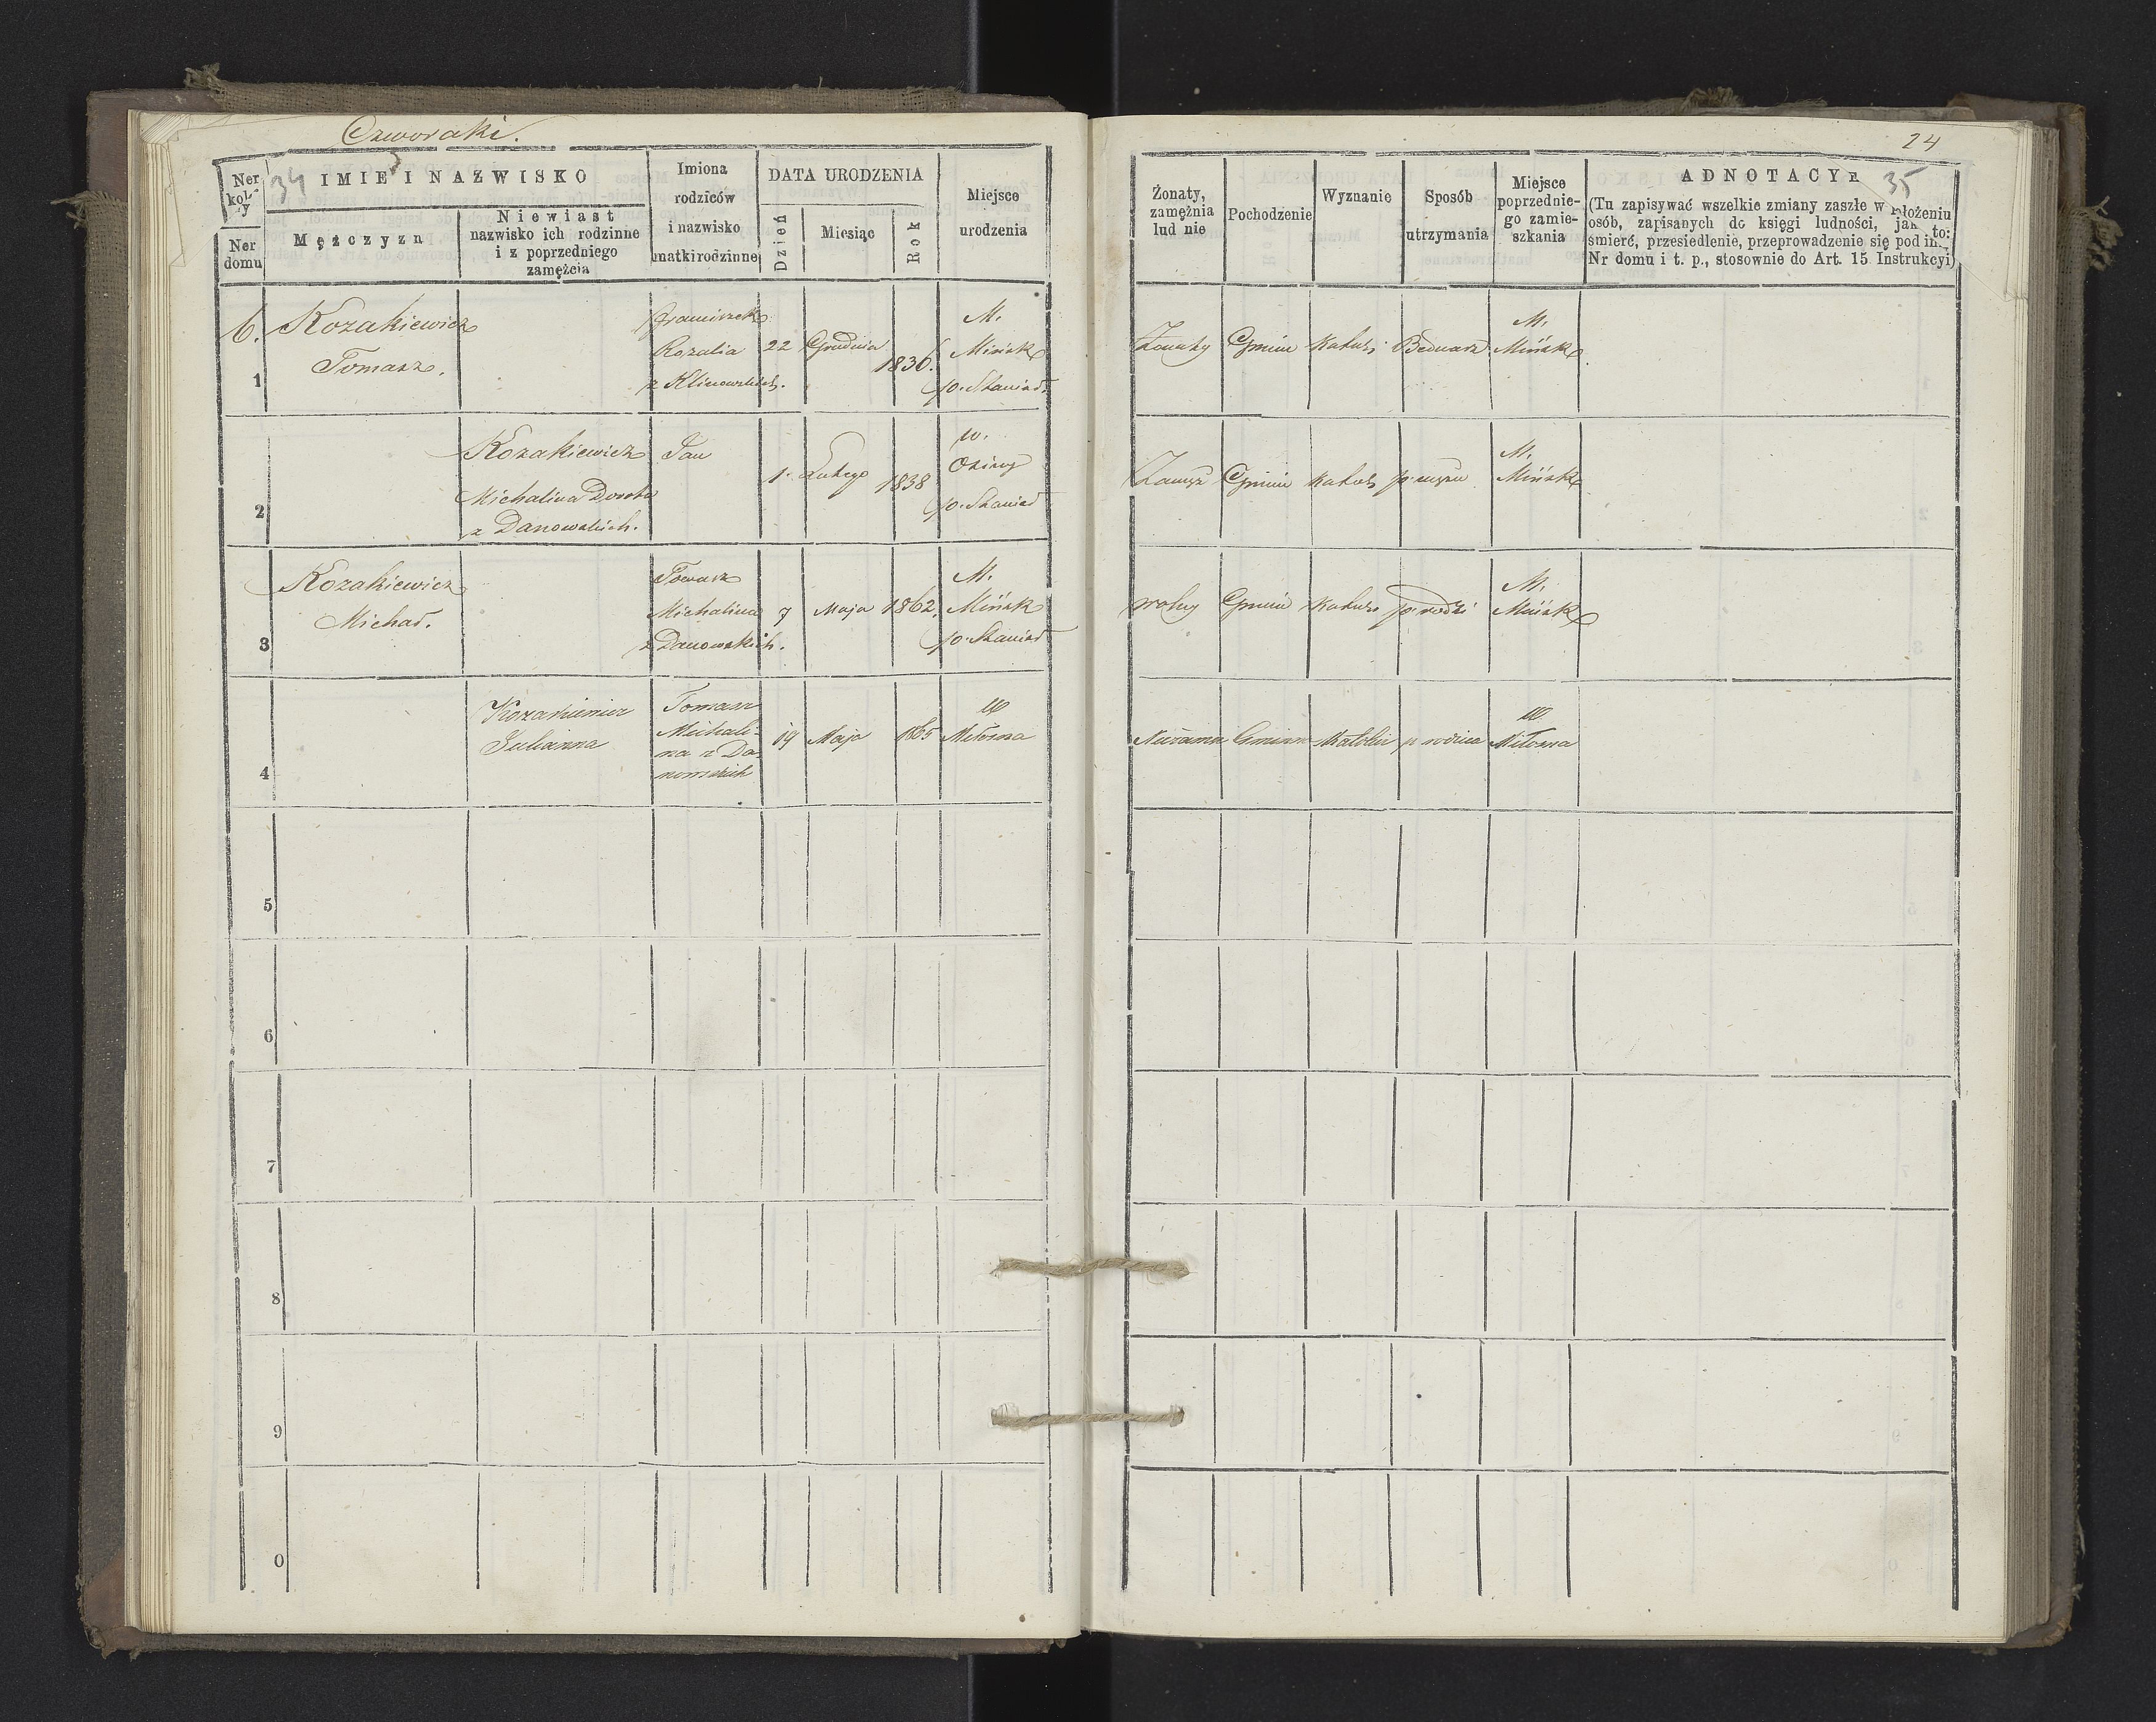 Czworaki.
34
Ner kol-y
Ner domu
IMIE I NAZWISKO
Mężczyzn
Niewiast
nazwisko ich rodzinne
i z poprzedniego
zamężcia
Imiona
rodziców
i nazwisko
matki rodzinne
DATA URODZENIA
Dzień
Miesiąc
Rok
Miejsce
urodzenia
6.
1
Kozakiewicz
Tomasz.
Franciszek
Rozalia
z Klimowskich.
22
Grudnia
1836.
M.
Mińsk
p. Stanisł
2
Kozakiewicz
Michalina Dorota
z Danowskich.
Jan
1.
Lutego
1838
w.
p. Stanisł
3
Kozakiewicz
Michał.
Tomasz
Michalina
z Danowskich.
7
Maja
1862.
M.
Mińsk
p. Stanisł
4
Kozakiewicz
Julianna
Tomasz
Michali-
na z Da-
nowskich
19
Maja
1865
W
Miłosna
5
6
7
8
9
0
24
35
Żonaty,
zamężnia
lud nie
Pochodzenie
Wyznanie
Sposób
utrzymania
Miejsce
poprzednie-
go zamie-
szkania
ADNOTACYE
(Tu zapisywać wszelkie zmiany zaszłe w położeniu
osób, zapisanych do księgi ludności, jak to:
śmierć, przesiedlenie, przeprowadzenie się pod in.
Nr domu i t. p., stosownie do Art. 15 Instrukcyi)
Żonaty
Gmin
Katol
Bednarz
M.
Mińsk
Zamęż
Gmin
Katol
p. mężu
M.
Mińsk
wolny
Gmin
Katol
p. rodzi
M.
Mińsk
Niezamę
Gminn
Katolic
p rodzica
W
Miłosna